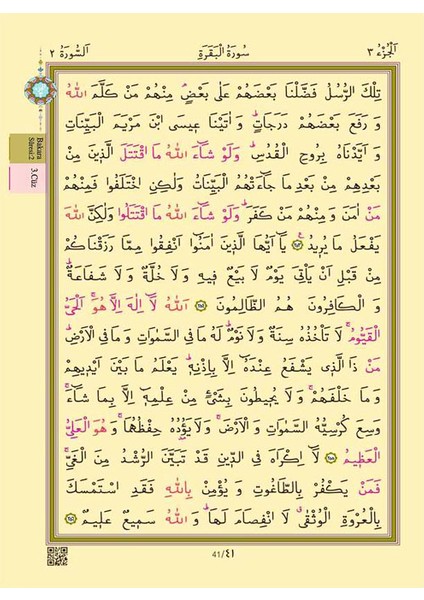 اَلْجُزْءُ ٣
سُورَةُ الْبَقَرَةِ
اَلسُّورَةُ ٢
تِلْكَ الرُّسُلُ فَضَّلْنَا بَعْضَهُمْ عَلٰى بَعْضٍۢ مِنْهُمْ مَنْ كَلَّمَ اللّٰهُ
وَ رَفَعَ بَعْضَهُمْ دَرَجَاتٍۜ وَ اٰتَيْنَا ع۪يسَى ابْنَ مَرْيَمَ الْبَيِّنَاتِ
وَ اَيَّدْنَاهُ بِرُوحِ الْقُدُسِۜ وَلَوْ شَٓاءَ اللّٰهُ مَا اقْتَتَلَ الَّذ۪ينَ مِنْ
بَعْدِهِمْ مِنْ بَعْدِ مَا جَٓاءَتْهُمُ الْبَيِّنَاتُ وَلٰكِنِ اخْتَلَفُوا فَمِنْهُمْ
مَنْ اٰمَنَ وَ مِنْهُمْ مَنْ كَفَرَۜ وَلَوْ شَٓاءَ اللّٰهُ مَا اقْتَتَلُوا وَلٰكِنَّ اللّٰهَ
يَفْعَلُ مَا يُر۪يدُ ۟ ﴿٢٥٣﴾ يَٓا اَيُّهَا الَّذ۪ينَ اٰمَنُٓوا اَنْفِقُوا مِمَّا رَزَقْنَاكُمْ
مِنْ قَبْلِ اَنْ يَأْتِيَ يَوْمٌ لَا بَيْعٌ ف۪يهِ وَ لَا خُلَّةٌ وَ لَا شَفَاعَةٌۜ
وَ الْكَافِرُونَ هُمُ الظَّالِمُونَ ﴿٢٥٤﴾ اَللّٰهُ لَٓا اِلٰهَ اِلَّا هُوَۚ اَلْحَيُّ
الْقَيُّومُۚ لَا تَأْخُذُهُ سِنَةٌ وَ لَا نَوْمٌۜ لَهُ مَا فِي السَّمٰوَاتِ وَ مَا فِي الْاَرْضِۜ
مَنْ ذَا الَّذ۪ي يَشْفَعُ عِنْدَهُٓ اِلَّا بِاِذْنِه۪ۜ يَعْلَمُ مَا بَيْنَ اَيْد۪يهِمْ
وَ مَا خَلْفَهُمْۚ وَ لَا يُح۪يطُونَ بِشَيْءٍ مِنْ عِلْمِه۪ٓ اِلَّا بِمَا شَٓاءَۚ
وَسِعَ كُرْسِيُّهُ السَّمٰوَاتِ وَ الْاَرْضَۚ وَ لَا يَؤُ۫دُهُ حِفْظُهُمَاۚ وَ هُوَ الْعَلِيُّ
الْعَظ۪يمُ ﴿٢٥٥﴾ لَٓا اِكْرَاهَ فِي الدّ۪ينِ قَدْ تَبَيَّنَ الرُّشْدُ مِنَ الْغَيِّۚ
فَمَنْ يَكْفُرْ بِالطَّاغُوتِ وَ يُؤْمِنْ بِاللّٰهِ فَقَدِ اسْتَمْسَكَ
بِالْعُرْوَةِ الْوُثْقٰىۗ لَا انْفِصَامَ لَهَاۜ وَ اللّٰهُ سَم۪يعٌ عَل۪يمٌ ﴿٢٥٦﴾
Bakara
Sûresi:2
3.Cüz
41/٤١